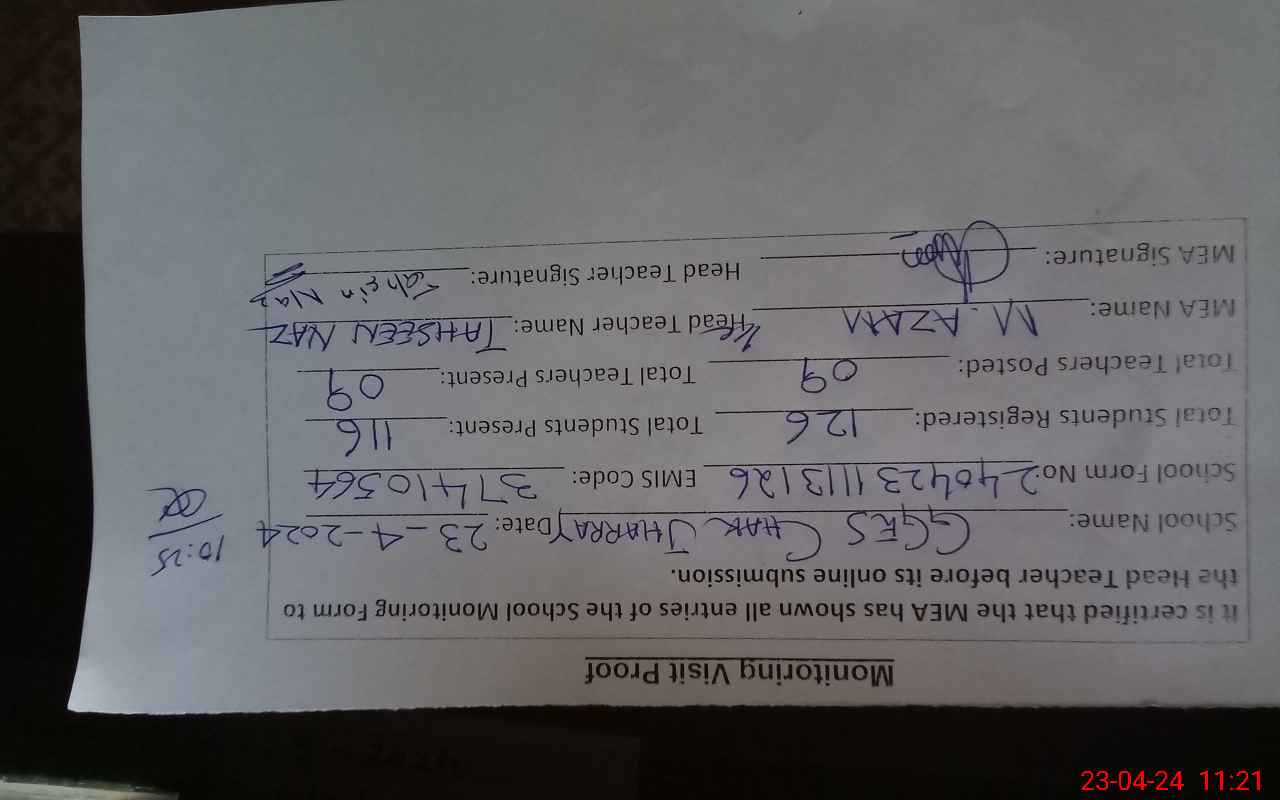 Monitoring Visit Proof
It is certified that the MEA has shown all entries of the School Monitoring Form to
the Head Teacher before its online submission.
School Name: GGES CHAK JHARRAY Date: 23-4-2024
10:25
School Form No: 240423111313126 EMIS Code: 37410564
Total Students Registered: 126 Total Students Present: 116
Total Teachers Posted: 09 Total Teachers Present: 09
MEA Name: M. AZAM Head Teacher Name: TAHSEEN NAZ
MEA Signature: Head Teacher Signature: Tahsin Naz
23-04-24 11:21